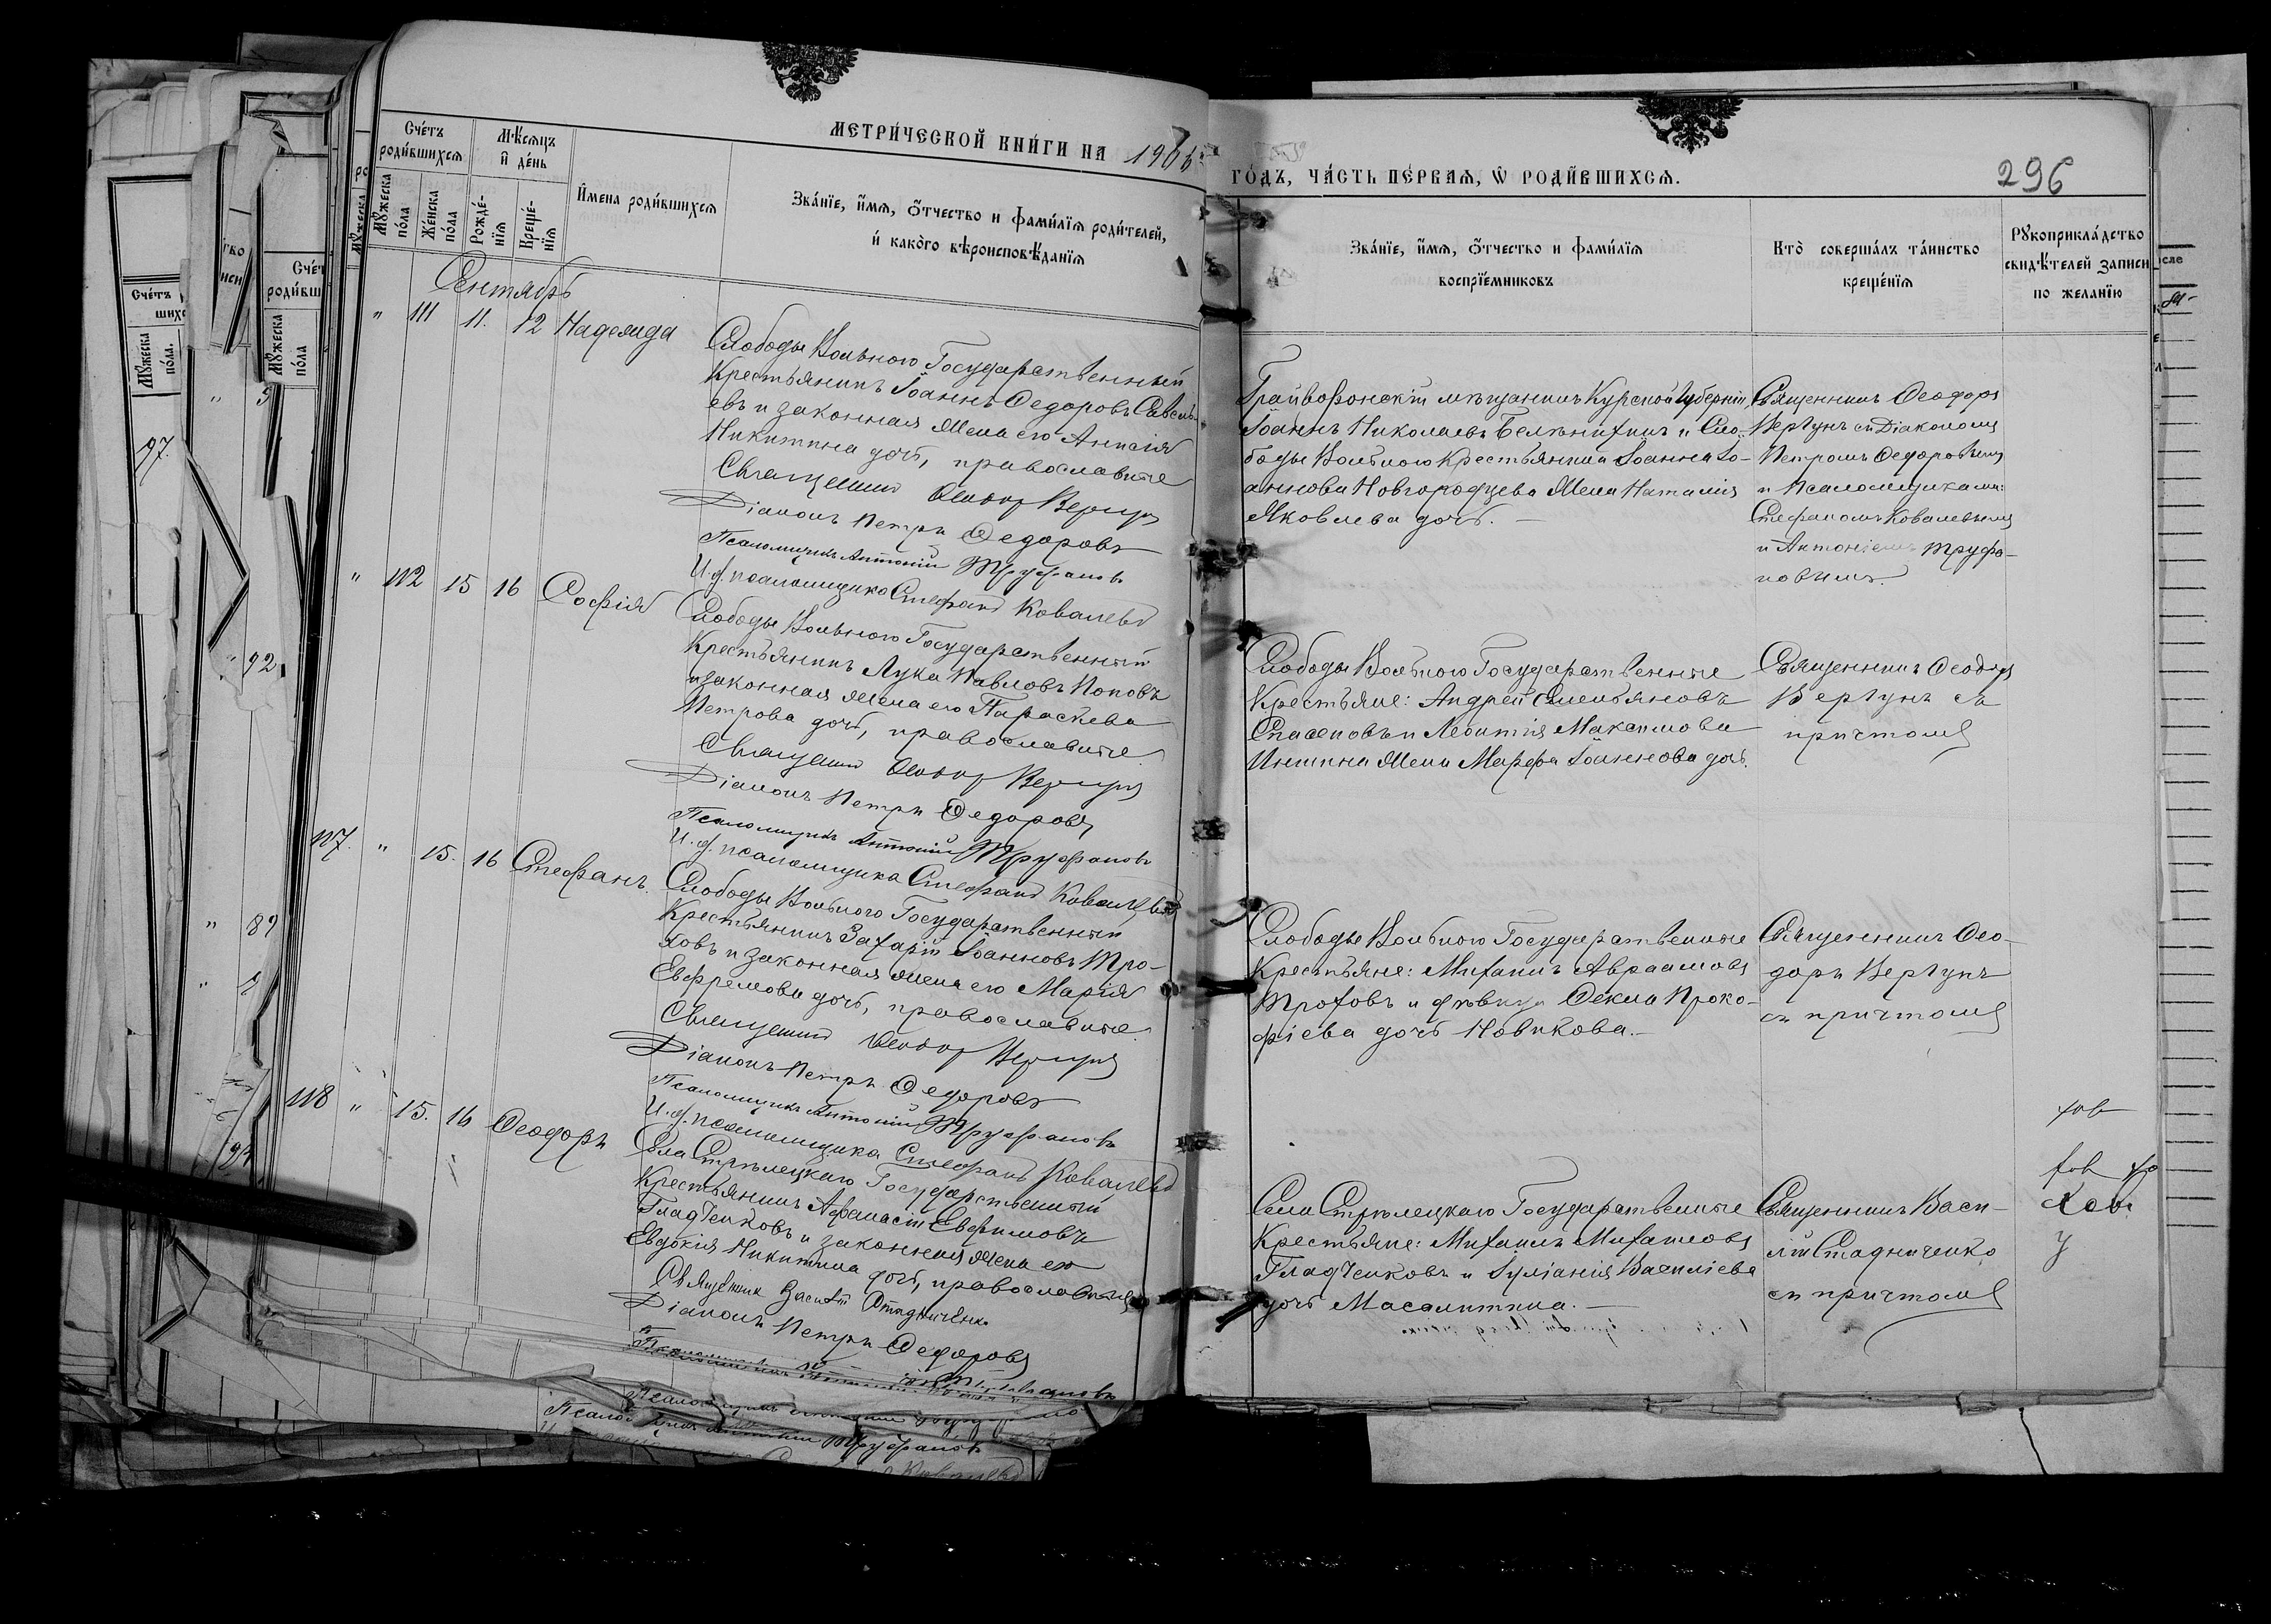 МЕТРИЧЕСКОЙ КНИГИ НА 1906
Счетъ родившихся
Мѣсяцъ и день
Мужеска пола
Женска пола
Рожденія
Крещенія
Имена родившихся
Званіе, имя, отчество и фамилія родителей, и какого вѣроисповѣданія
Сентябрь
" 111 11. 12 Надежда
Слободы Вольного Государственный
Крестьянинъ Іоаннъ Федоровъ Савель-
евъ и законная жена его Анисія
Никитина дочь, православные
Священникъ Феодор Вергунъ
Діаконъ Петръ Федоровъ
Псаломщикъ Антоній Труфановъ
И. д. псаломщика Стефанъ Ковалевъ
" 112 15 16 Софія
Слободы Вольного Государственный
Крестьянинъ Лука Павловъ Поповъ
и законная жена его Параскева
Петрова дочь, православные.
Священникъ Феодор Вергунъ
Діаконъ Петръ Федоровъ
Псаломщикъ Антоній Труфановъ
И. д. псаломщика Стефанъ Ковалевъ
117. " 15. 16 Стефанъ.
Слободы Вольного Государственный
Крестьянинъ Захарій Іоанновъ Тро-
ховъ и законная жена его Марія
Евфремова дочь, православные.
Священникъ Феодор Вергунъ
Діаконъ Петръ Федоровъ
Псаломщикъ Антоній Труфановъ
И. д. псаломщика Стефанъ Ковалевъ
118 " 15. 16 Феодоръ
Села Стрѣлецкаго Государственный
Крестьянинъ Афанасій Евфимовъ
Гладченковъ и законная жена его
Евдокія Никитина дочь, православные
Священник Василій Стадниченко
Діаконъ Петръ Федоровъ
Псаломщикъ Антоній Труфановъ
ГОДЪ, ЧАСТЬ ПЕРВАЯ, Ѡ РОДИВШИХСЯ.
296
Званіе, имя, отчество и фамилія
воспріемниковъ
Кто совершалъ таинство
крещенія
Рукоприкладство
свидѣтелей записи
по желанію
Грайворонскій мѣщанинъ Курской губерніи,
Іоаннъ Николаевъ и Сло-
боды Вольного Крестьянина Іоанна Іо-
аннова Новгородцева жена Наталія
Яковлева дочь. —
Священникъ Феодоръ
Вергунъ съ Діакономъ
Петромъ Федоровымъ
и Псаломщиками:
Стефаномъ Ковалевымъ
и Антоніемъ Труфа-
новымъ.
Слободы Вольного Государственные
Крестьяне: Андрей Емельяновъ
и Леонтія Максимова
жена Марфа Іоаннова дочь.
Священникъ Феодоръ
Вергунъ съ
причтомъ
Слободы Вольного Государственные
Крестьяне: Михаилъ Авраамовъ
Троховъ и дѣвица Фекла Проко-
фіева дочь Новикова. —
Священникъ Фео-
доръ Вергунъ
съ причтомъ
Села Стрѣлецкаго Государственные
Крестьяне: Михаилъ Михайловъ
Гладченковъ и Іуліанія Василіева
дочь Масалитина. —
Священникъ Васи-
лій Стадниченко
съ причтомъ
97.
92
89